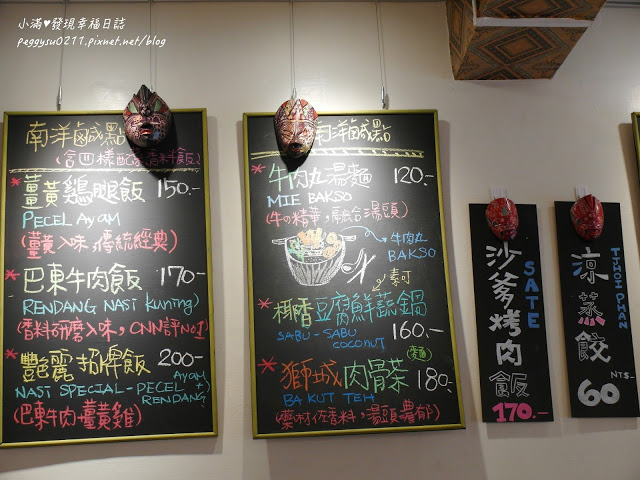 小滿♥發現幸福日誌
peggysu0211.pixnet.net/blog
南洋鹹點
*薑黃雞腿飯 150.-
PECEL AYAM
(薑黃入味,傳統經典)
*巴東牛肉飯 170.-
RENDANG NASI KUNING)
(香料研磨入味,CNN評NO1)
*艷麗招牌飯 200-
NASI SPECIAL-PECEL AYAM +
RENDANG)
(巴東牛肉+薑黃雞)
南洋鹹點
*牛肉丸湯麵 120.-
MIE BAKSO
(牛の精華,湯頭)
牛肉丸
BAKSO
素可
*椰香豆腐鮮蔬鍋
SABU-SABU
COCONUT
160.-
*獅城肉骨茶 180.-
BA KUT TEH
(藥材佐香料,湯頭濃郁)
沙爹烤肉飯
SATE
170.-
涼蒸餃
TYHOI PHAN
NT$
60.-